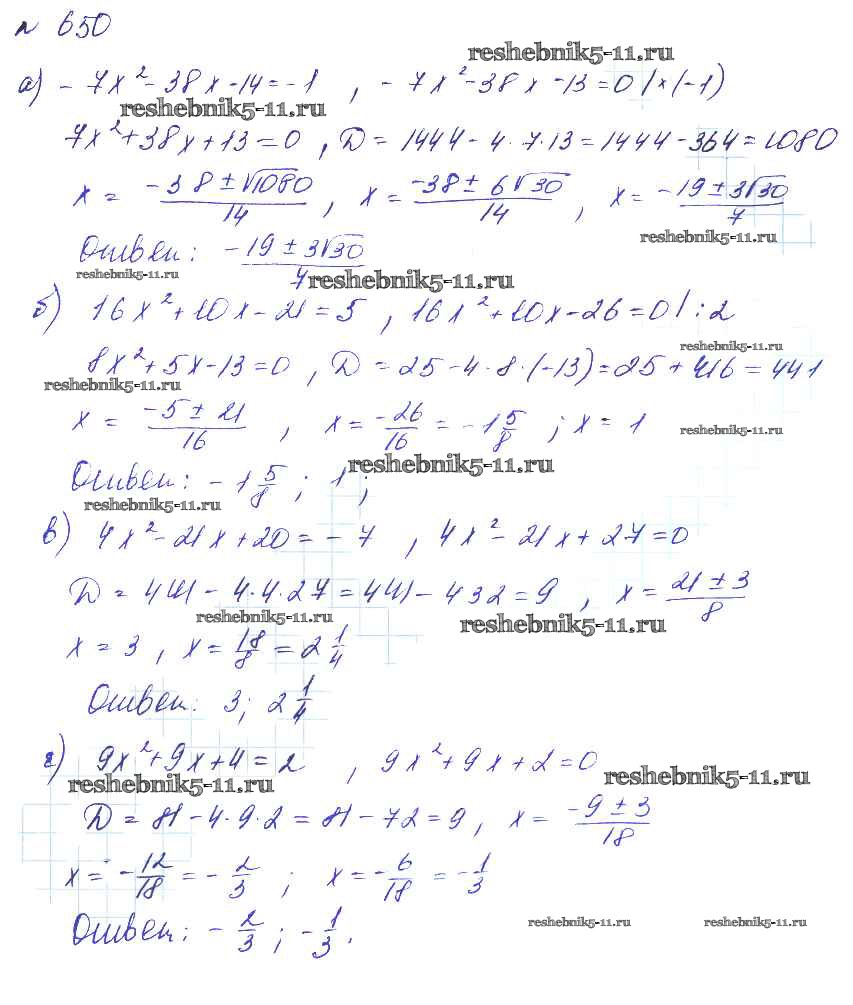 № 650
reshebnik5-11.ru
а) - 7x² - 38x - 14 = -1 , - 7x² - 38x - 13 = 0 | × (-1)
reshebnik5-11.ru
7x² + 38x + 13 = 0 , D = 1444 - 4 · 7 · 13 = 1444 - 364 = 1080
x = (-38 ± √1080)/14 , x = (-38 ± 6√30)/14 , x = (-19 ± 3√30)/7
reshebnik5-11.ru
Ответ: (-19 ± 3√30)/7
reshebnik5-11.ru
reshebnik5-11.ru
б) 16x² + 10x - 21 = 5 , 16x² + 10x - 26 = 0 | : 2
reshebnik5-11.ru
8x² + 5x - 13 = 0 , D = 25 - 4 · 8 · (-13) = 25 + 416 = 441
reshebnik5-11.ru
x = (-5 ± 21)/16 , x = -26/16 = -1 5/8 ; x = 1
reshebnik5-11.ru
reshebnik5-11.ru
Ответ: -1 5/8 ; 1 ;
reshebnik5-11.ru
в) 4x² - 21x + 20 = - 7 , 4x² - 21x + 27 = 0
D = 441 - 4 · 4 · 27 = 441 - 432 = 9 , x = (21 ± 3)/8
reshebnik5-11.ru
reshebnik5-11.ru
x = 3 , x = 18/8 = 2 1/4
Ответ: 3; 2 1/4
г) 9x² + 9x + 4 = 2 , 9x² + 9x + 2 = 0
reshebnik5-11.ru
reshebnik5-11.ru
D = 81 - 4 · 9 · 2 = 81 - 72 = 9 , x = (-9 ± 3)/18
x = -12/18 = -2/3 ; x = -6/18 = -1/3
Ответ: -2/3 ; -1/3 .
reshebnik5-11.ru
reshebnik5-11.ru